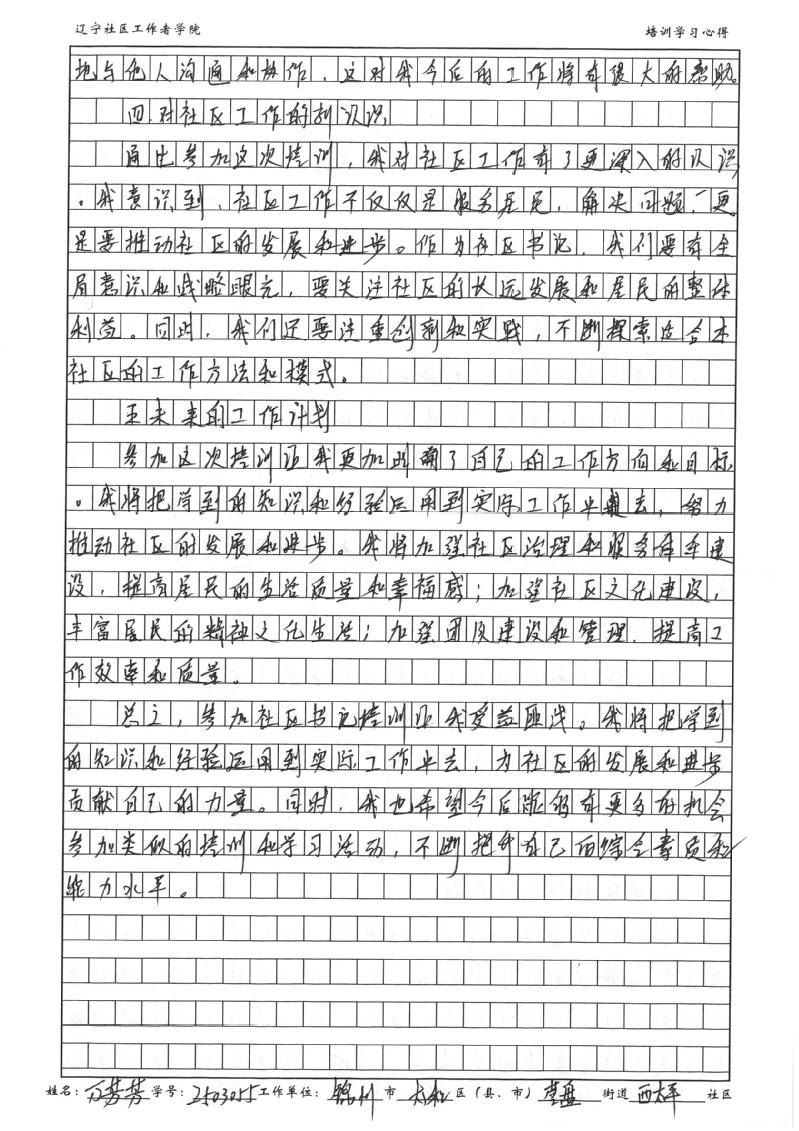 辽宁社区工作者学院 培训学习心得
地与他人沟通和协作，这对我今后的工作将有很大的帮助。
四.对社区工作的新认识
通过参加这次培训，我对社区工作有了更深入的认识
。我意识到，社区工作不仅仅是服务居民，解决问题，更
是要推动社区的发展和进步。作为社区书记，我们要有全
局意识和战略眼光，要关注社区的长远发展和居民的整体
利益。同时，我们还要注重创新和实践，不断探索适合本
社区的工作方法和模式。
五未来的工作计划
参加这次培训让我更加明确了自己的工作方向和目标
。我将把学到的知识和经验运用到实际工作中去，努力
推动社区的发展和进步。我将加强社区治理和服务体系建
设，提高居民的生活质量和幸福感；加强社区文化建设，
丰富居民的精神文化生活；加强团队建设和管理，提高工
作效率和质量。
总之，参加社区书记培训让我受益匪浅。我将把学到
的知识和经验运用到实际工作中去，为社区的发展和进步
贡献自己的力量。同时，我也希望今后能够有更多的机会
参加类似的培训和学习活动，不断提升自己的综合素质和
能力水平。
姓名：万芳芳 学号：2503055 工作单位：锦州 市 太和 区（县、市） 营盘 街道 西大平 社区